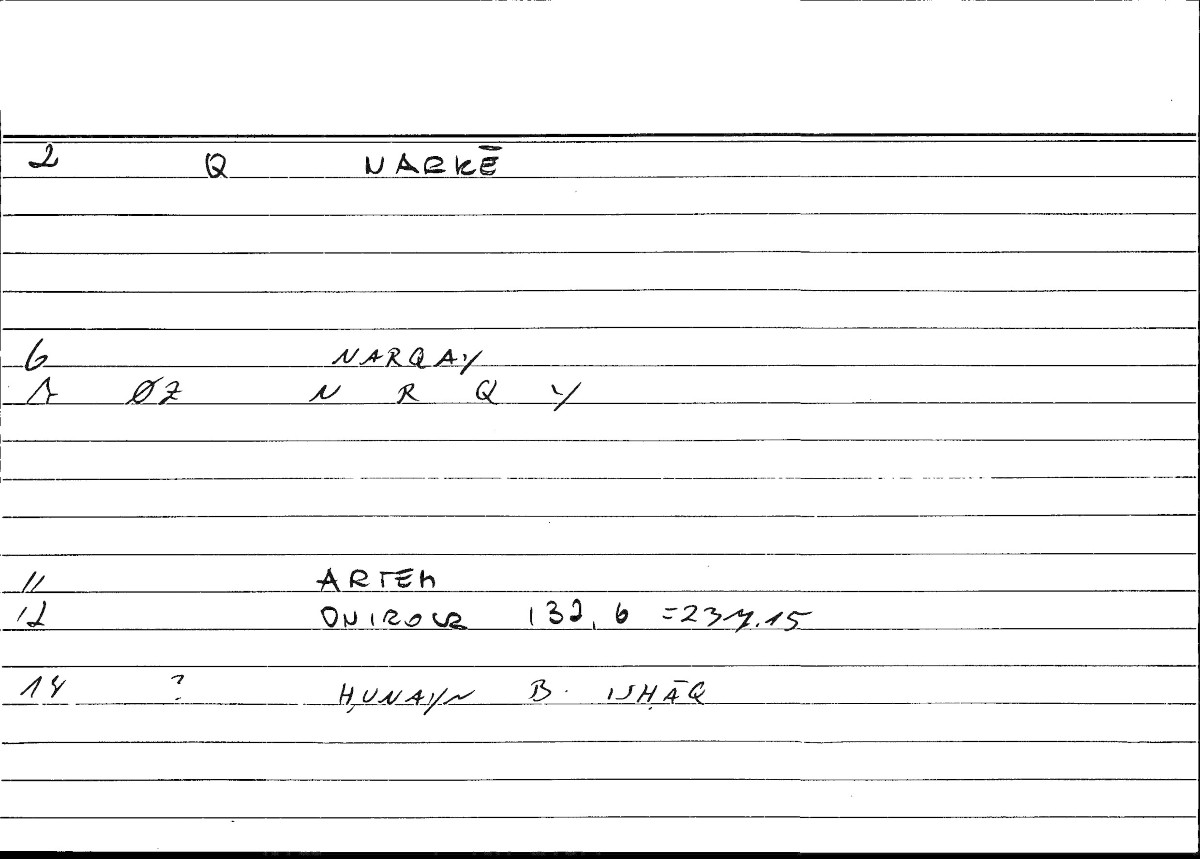 2 Q NARKĒ
6 NARQAY
ØZ N R Q Y
11 ARTEM
12 ONIROCR 132, 6 =237.15
14 ? ḤUNAYN B. ISḤĀQ